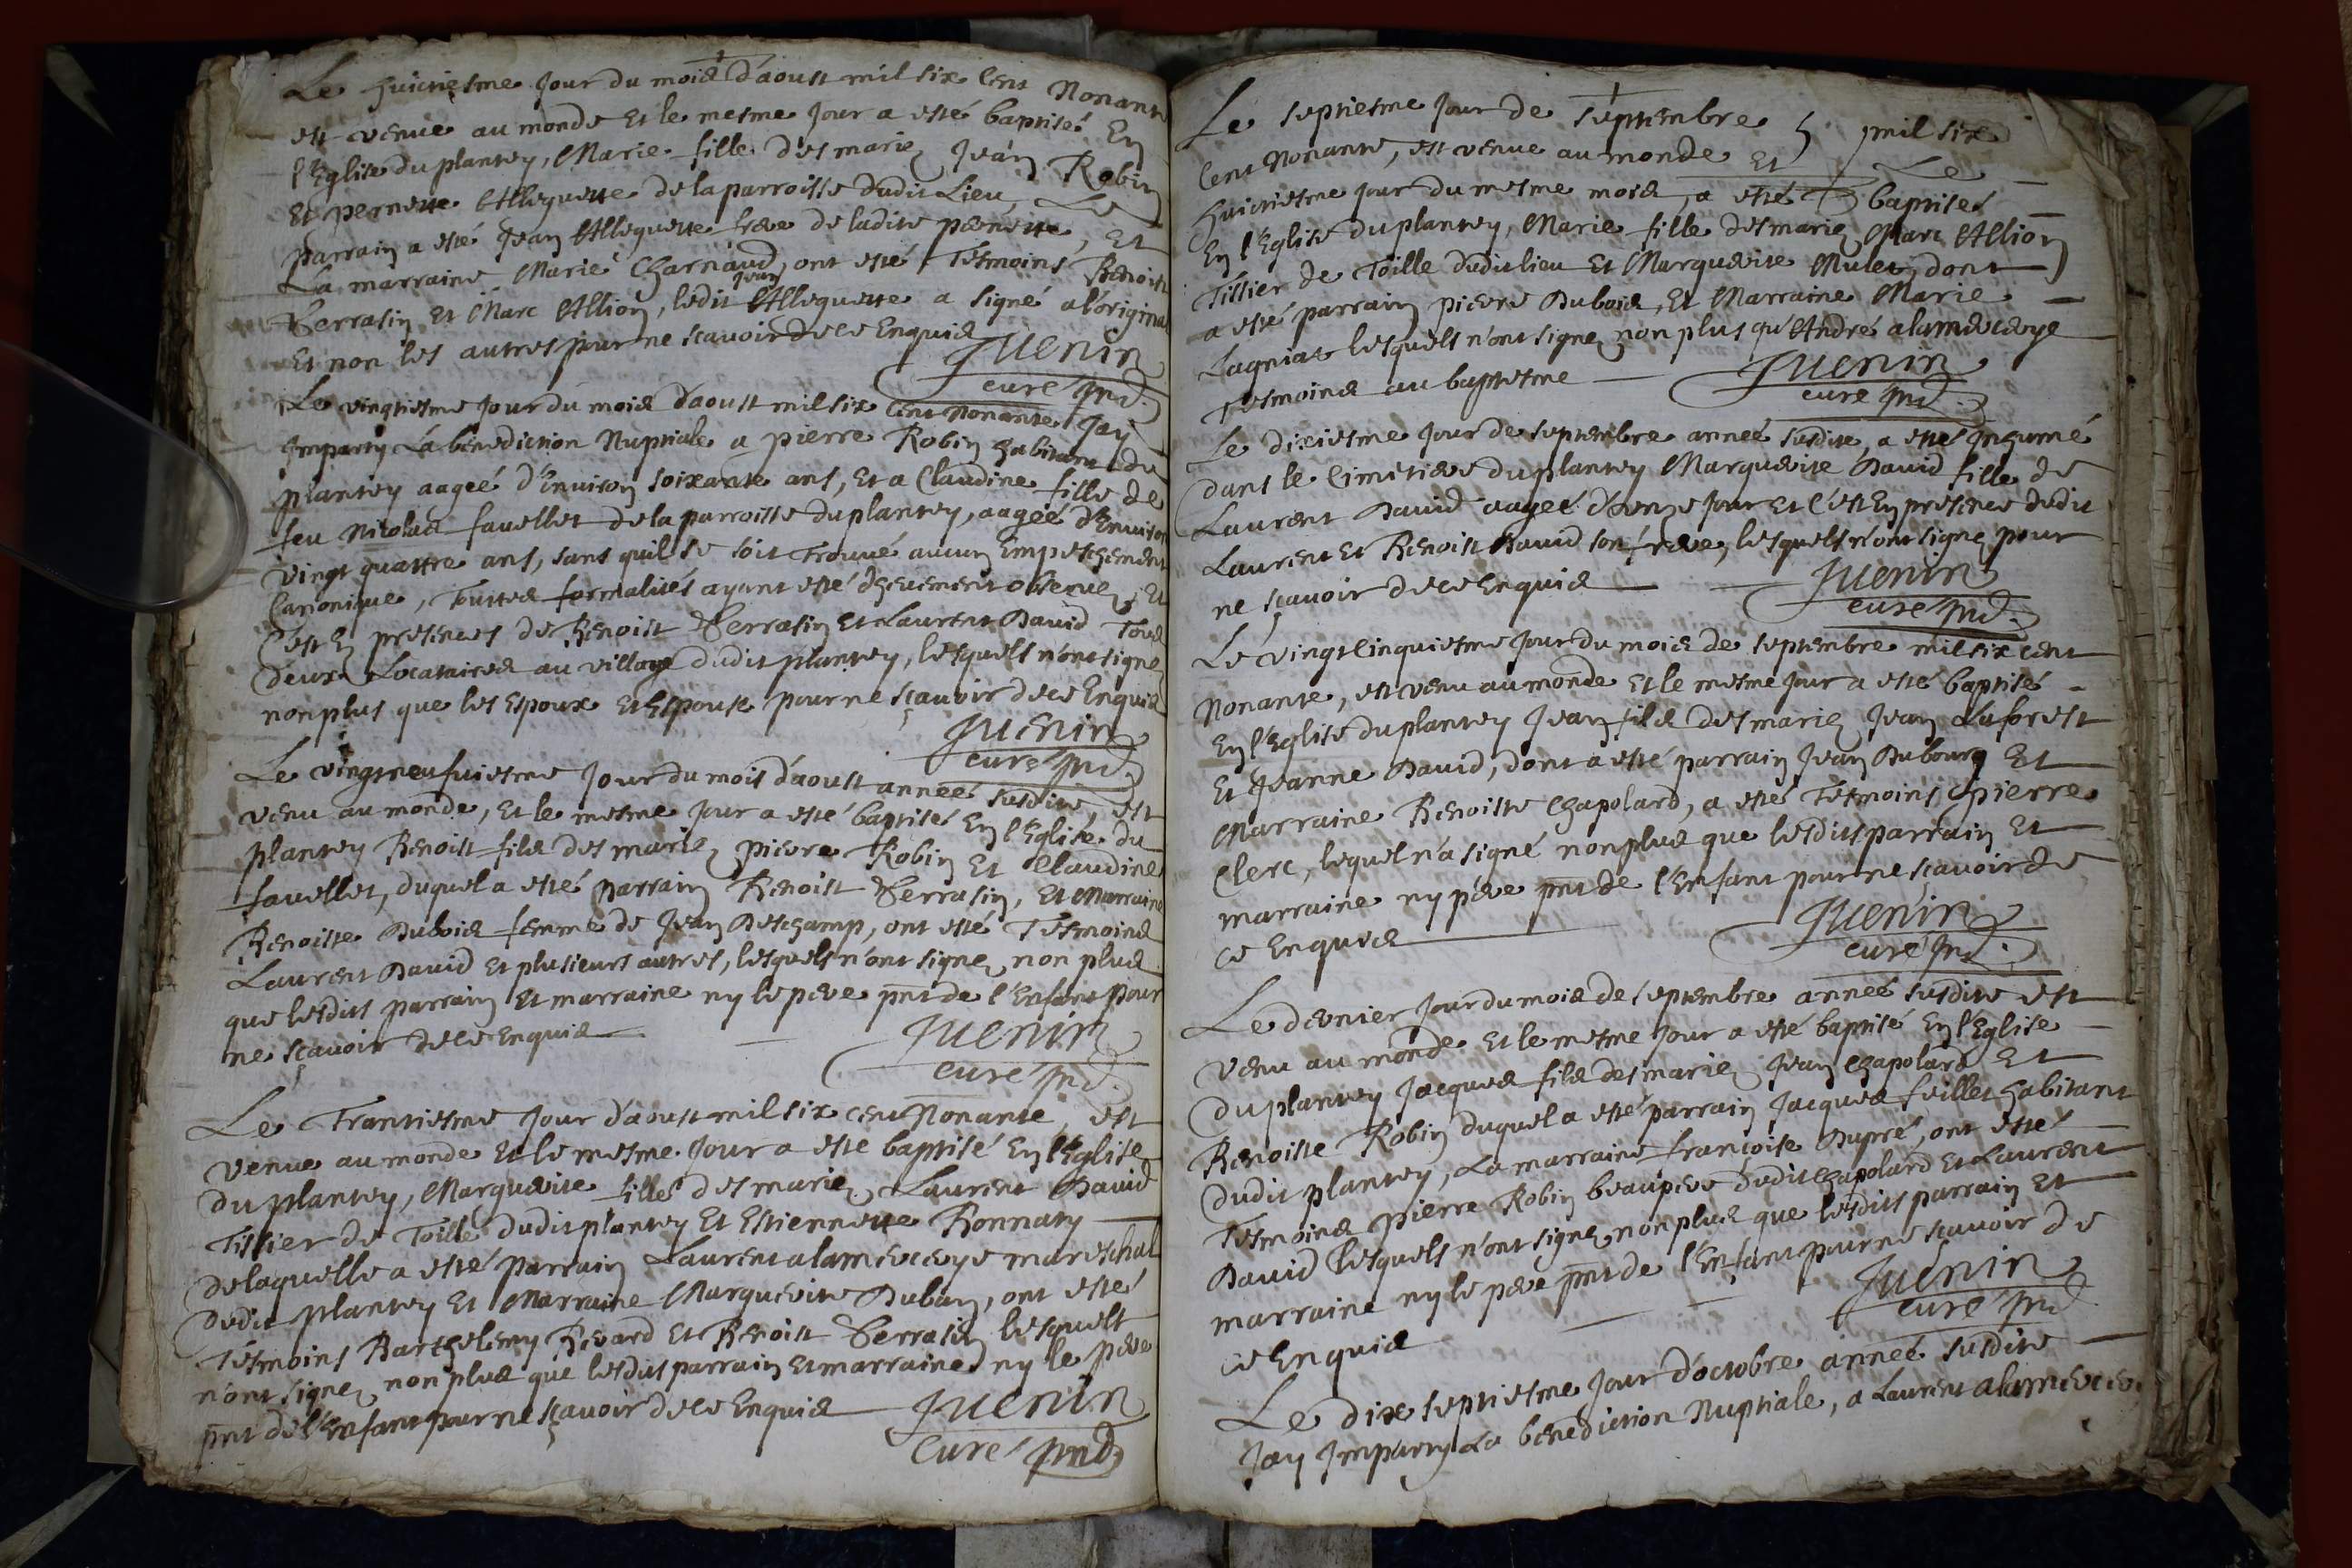 Le huictiesme jour du mois d'aoust mil six cens Nonante
est venue au monde Et le mesme jour a esté baptisé En
l'Eglise du plantey, Marie fille des mariez Jean Robin
Et pernette Alleguette de la parroisse dudit Lieu, Le
parrain a esté Jean Alleguette frere de ladite pernette, Et
La marraine Marie Charnaud, ont esté Tesmoins Benoist
Terrasin Et Marc Allion, ledit Jean Alleguette a signé a l'original
Et non les autres pour ne scavoir de ce Enquis
Juenin
curé
Le vingtiesme jour du mois d'aoust mil six cens Nonante Jay
Imparty La benediction Nuptiale a pierre Robin habitant du
plantey aagée d'Environ soixante ans, Et a Claudine fille de
feu Nicolas favellet de la parroisse du plantey, aagée d'Environ
vingt quattre ans, sans quil se soit Trouvé aucun Empeschement
Canonique, Touttes formalités ayant esté deuement observez, Et
C'est En presences de Benoist Terrasin Et Laurent David Tous
deux Locataires au village dudit plantey, lesquels n'ont signe
non plus que les Espoux Et Espouse pour ne sçavoir de ce Enquis
Juenin
curé
Le vingtneufuiesme jour du mois d'aoust année susdite est
venu au monde, Et le mesme jour a esté baptisé En l'Eglise du
plantey Benoist fils des mariez pierre Robin Et Claudine
favellet, duquel a esté parrain Benoist Terrasin, Et Marraine
Benoiste Dubois femme de Jean Deschamp, ont esté Tesmoins
Laurent David Et plusieurs autres, lesquels n'ont signez non plus
que lesdits parrain Et marraine ny le pere pnt de l'Enfant pour
ne scavoir de ce Enquis
Juenin
curé
Le Trantiesme jour d'aoust mil six cens Nonante est
venue au monde Et le mesme jour a esté baptisé En l'Eglise
du plantey, Marguerite fille des mariez Laurent David
Tissier de Toille dudit plantey Et Estiennette Bonnaty
delaquelle a esté parrain Laurent alamercerye mareschal
dudit plantey Et Marraine Marguerite Duban, ont esté
Tesmoins Barthelemy Bevard Et Benoist Terrasin lesquels
n'ont signez non plus que lesdits parrain Et marraine ny le pere
pnt de l'Enfant pour ne sçavoir de ce Enquis
Juenin
Curé
Le septiesme jour de septembre mil six
Cent Nonante, est venue au monde Et Le
huictiesme jour du mesme mois, a esté baptisé
En l'Eglise du plantey, Marie fille des mariez Marc Allion
Tissier de Toille dudit lieu Et Marguerite Mulet, dont
a esté parrain pierre Dubois, Et Marraine Marie
Lagniat lesquels n'ont signez non plus qu'André alamercerye
Tesmoins au baptesme
Juenin
curé
Le dixiesme jour de septembre année susdite, a esté Inhumé
dans le Cimitiere du plantey Marguerite David fille de
Laurent David aagée d'honze jour Et C'est En presence dudit
Laurent Et Benoist David son frere, lesquels n'ont signez pour
ne sçavoir de ce Enquis
Juenin
curé
Le vingt cinquiesme jour du mois de septembre mil six cent
Nonante, est venu au monde Et le mesme jour a esté baptisé
En l'Eglise du plantey Jean fils des mariez Jean Laforest
Et Jeanne David, dont a esté parrain Jean Dubourg Et
Marraine Benoiste Chapolard, a esté Tesmoins pierre
Clerc, lequel n'a signé non plus que lesdits parrain Et
marraine ny pere pnt de l'Enfant pour ne scavoir de
ce Enquis
Juenin
curé
Le dernier jour du mois de septembre année susdite est
venu au monde Et le mesme jour a esté baptisé En l'Eglise
du plantey Jacques fils des mariez Jean Chapolard Et
Benoiste Robin duquel a esté parrain Jacques feillet habitant
dudit plantey, La marraine francoise Dupré, ont esté
Tesmoins pierre Robin beaupere dudit Chapolard Et Laurent
David lesquels n'ont signez non plus que lesdits parrain Et
marraine ny le pere pnt de l'Enfant pour ne scavoir de
ce Enquis
Juenin
curé
Le dix septiesme jour d'octobre année susdite
Jay Imparty La benediction Nuptiale, a Laurent